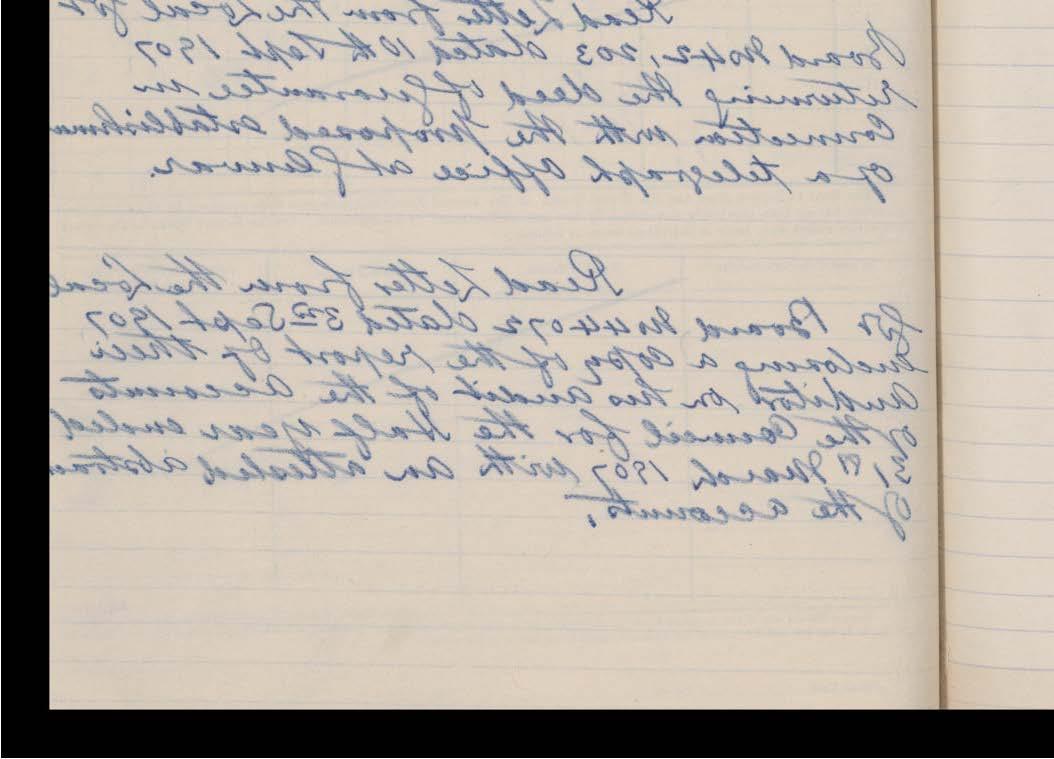 Read Letter from the Local Gov
Board No 42,203 dated 10th Sept 1907
returning the deed of Guarantee in
Connection with the proposed establishme
of a telegraph Office at
Read Letter from the Local
Gov Board No 44072 dated 3rd Sept 1907
enclosing a copy of the report by their
Auditor on his audit of the accounts
of the Council for the half year ended
31st March 1907 with an attested abstrac
of the accounts.